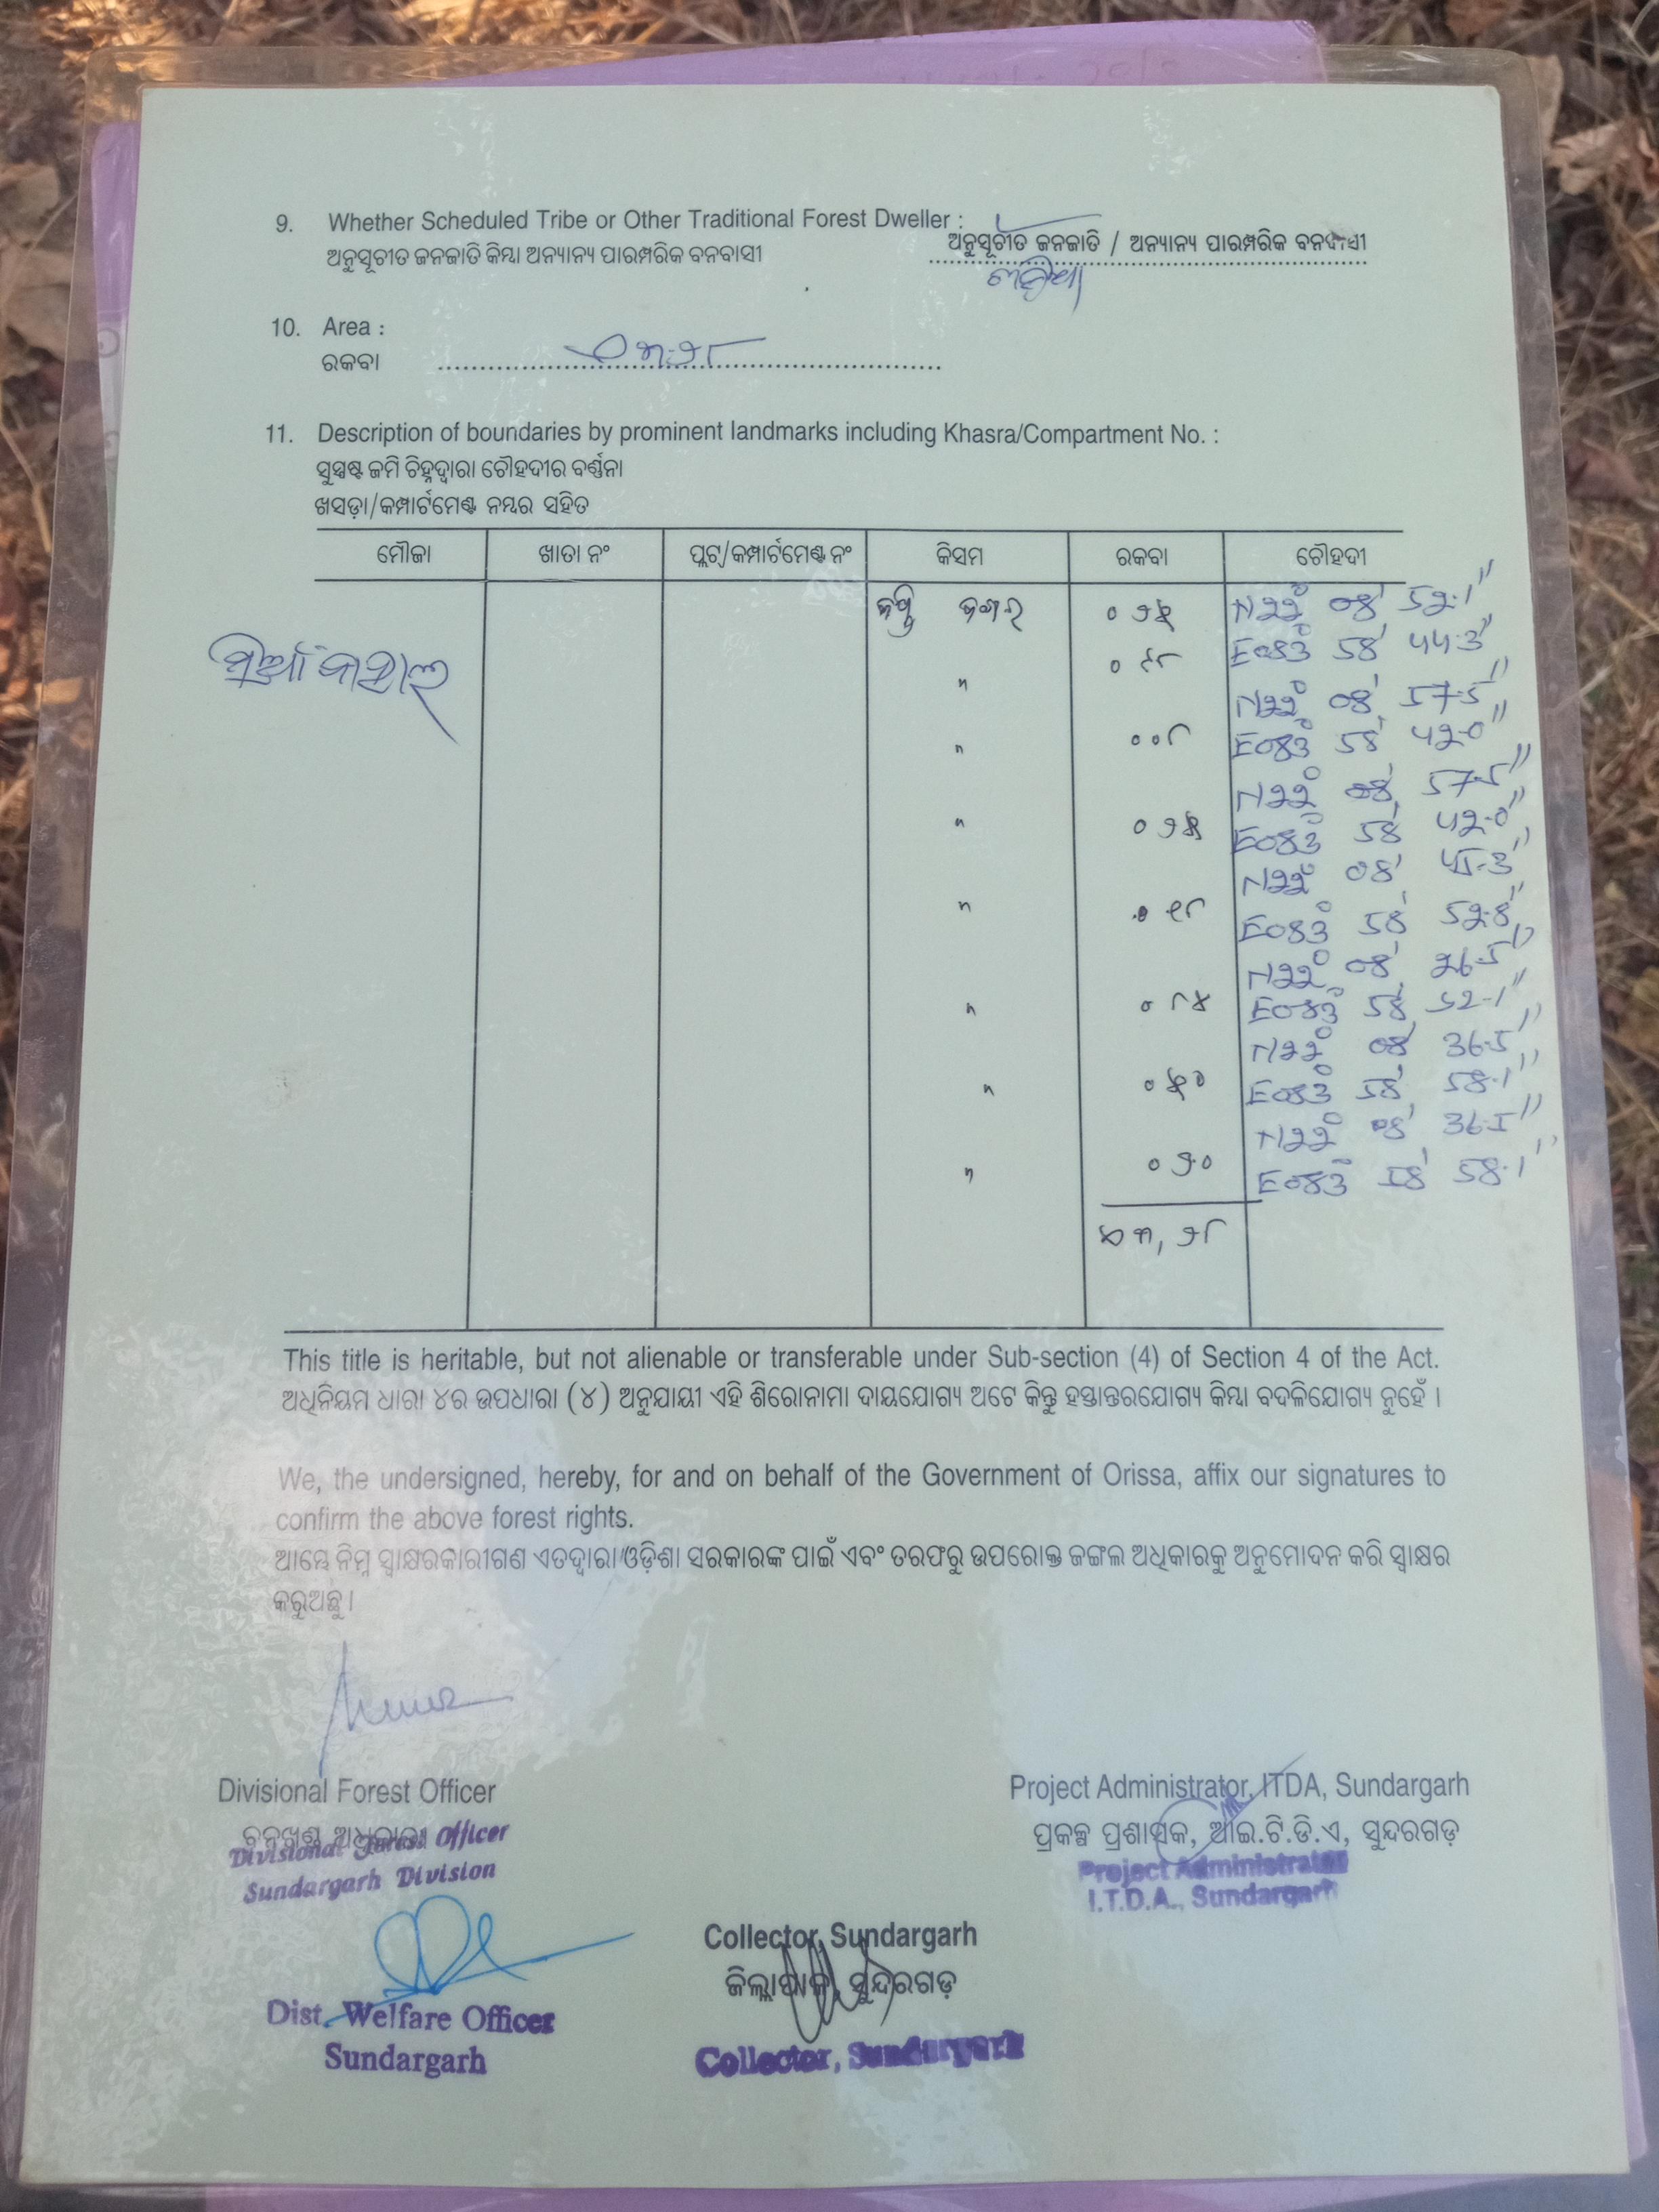 9. Whether Scheduled Tribe or Other Traditional Forest Dweller :
ଅନୁସୂଚୀତ ଜନଜାତି କିମ୍ବା ଅନ୍ୟାନ୍ୟ ପାରମ୍ପରିକ ବନବାସୀ
ଅନୁସୂଚୀତ ଜନଜାତି / ଅନ୍ୟାନ୍ୟ ପାରମ୍ପରିକ ବନବାସୀ
10. Area :
ରକବା
11. Description of boundaries by prominent landmarks including Khasra/Compartment No. :
ସୁସ୍ପଷ୍ଟ ଜମି ଚିହ୍ନଦ୍ୱାରା ଚୌହଦୀର ବର୍ଣ୍ଣନା
ଖସଡ଼ା/କମ୍ପାର୍ଟମେଣ୍ଟ ନମ୍ବର ସହିତ
ମୌଜା ଖାତା ନଂ ପ୍ଲଟ୍/କମ୍ପାର୍ଟମେଣ୍ଟ ନଂ କିସମ ରକବା ଚୌହଦୀ
N22° 08' 52.1"
E083° 58' 44.3"
N22° 08' 57.5"
E083° 58' 42.0"
N22° 08' 57.5"
E083° 58' 42.0"
N22° 08' 45.3"
E083° 58' 52.8"
N22° 08' 26.5"
E083° 58' 52.1"
N22° 08' 36.5"
E083° 58' 58.1"
N22° 08' 36.5"
E083° 58' 58.1"
This title is heritable, but not alienable or transferable under Sub-section (4) of Section 4 of the Act.
ଅଧିନିୟମ ଧାରା ୪ର ଉପଧାରା (୪) ଅନୁଯାୟୀ ଏହି ଶିରୋନାମା ଦାୟଯୋଗ୍ୟ ଅଟେ କିନ୍ତୁ ହସ୍ତାନ୍ତରଯୋଗ୍ୟ କିମ୍ବା ବଦଳିଯୋଗ୍ୟ ନୁହେଁ ।
We, the undersigned, hereby, for and on behalf of the Government of Orissa, affix our signatures to
confirm the above forest rights.
ଆମ୍ଭେ ନିମ୍ନ ସ୍ୱାକ୍ଷରକାରୀଗଣ ଏତଦ୍ୱାରା ଓଡ଼ିଶା ସରକାରଙ୍କ ପାଇଁ ଏବଂ ତରଫରୁ ଉପରୋକ୍ତ ଜଙ୍ଗଲ ଅଧିକାରକୁ ଅନୁମୋଦନ କରି ସ୍ୱାକ୍ଷର
କରୁଅଛୁ ।
Divisional Forest Officer
ବନଖଣ୍ଡ ଅଧିକାରୀ
Divisional Forest Officer
Sundargarh Division
Project Administrator, ITDA, Sundargarh
ପ୍ରକଳ୍ପ ପ୍ରଶାସକ, ଆଇ.ଟି.ଡି.ଏ, ସୁନ୍ଦରଗଡ଼
Project Administrator
I.T.D.A., Sundargarh
Dist. Welfare Officer
Sundargarh
Collector, Sundargarh
ଜିଲ୍ଲାପାଳ, ସୁନ୍ଦରଗଡ଼
Collector, Sundargarh